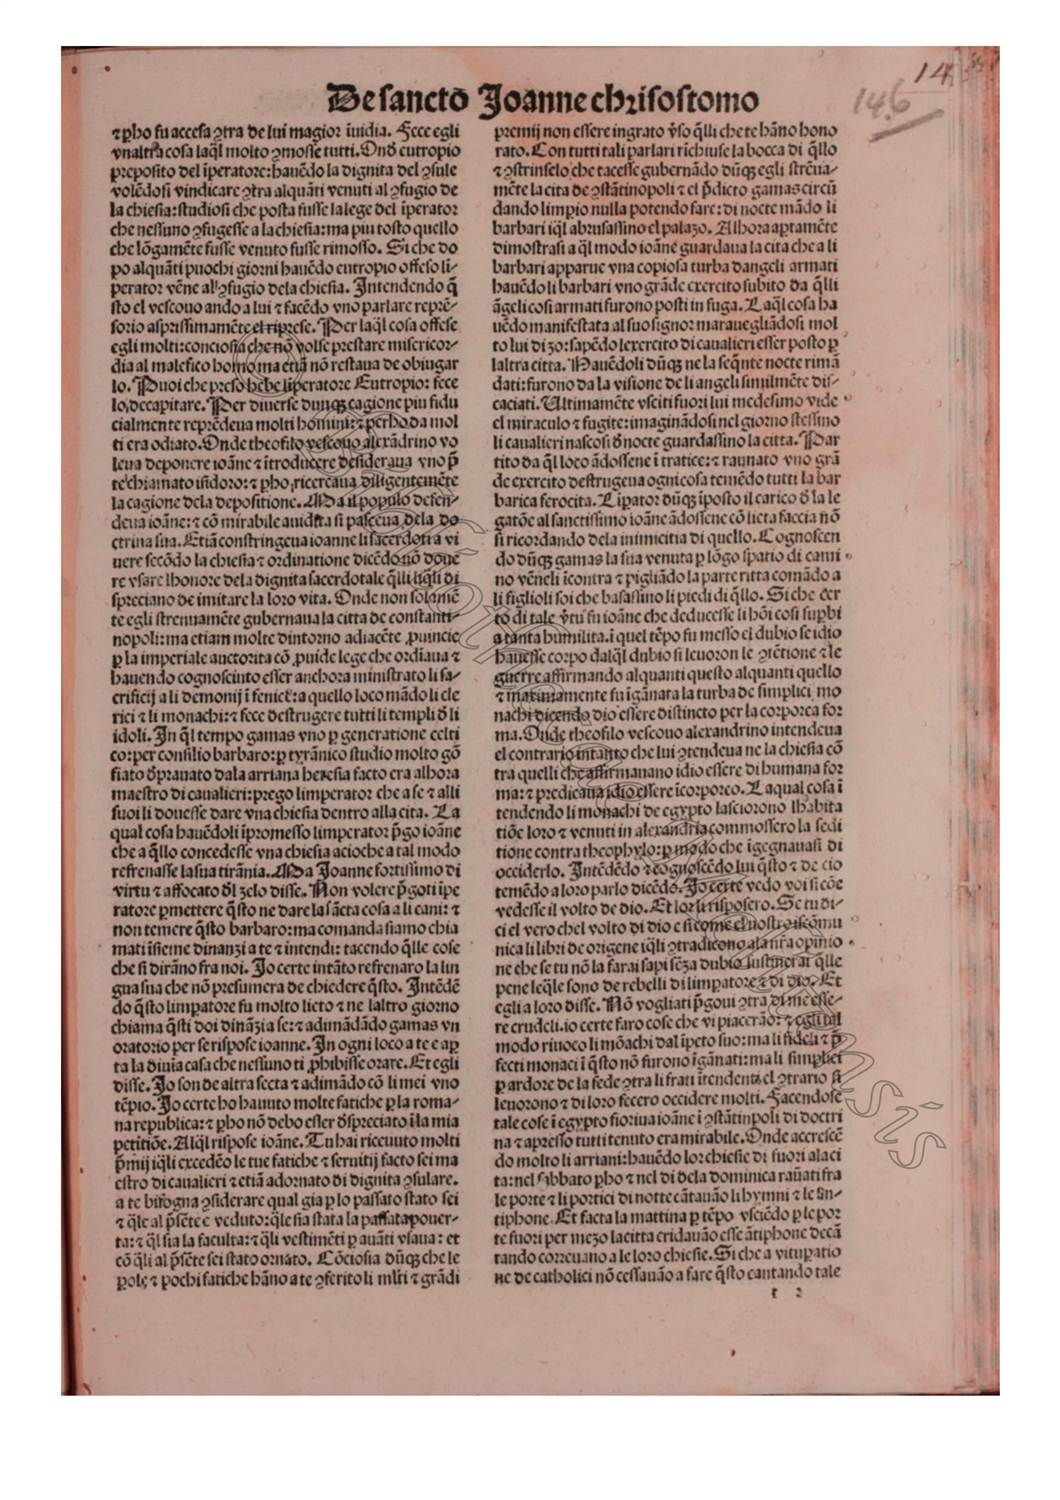 De sancto Joanne chrisostomo
14
146
⁊ ꝑho fu accesa ɔtra de lui magior ĩuidia. Fece egli
vnaltra cosa laq̃l molto ɔmosse tutti. Onđ eutropio
preposito del ĩperatore: hauẽdo la dignita del ɔsule
volẽdosi vindicare ɔtra alquãti venuti al ɔfugio de
la chiesia: studiosi che posta fusse la lege del ĩperator
che nessuno ɔfugesse a la chiesia: ma piu tosto quello
che lõgamẽte fusse venuto fusse rimosso. Si che do
po alquãti puochi giorni hauẽdo eutropio offeso li-
perator vẽne al ɔfugio dela chiesia. Intendendo q̃
sto el vescouo ando a lui ⁊ facẽdo vno parlare reprẽ-
sorio asprissimamẽte el riprese. Per laq̃l cosa offese
egli molti: conciosia che nõ volse prestare misericor-
dia al malefico homo ma etiã nõ restaua de obiurgar
lo. Puoi che preso hebe lĩperatore Eutropio: fece
lo decapitare. Per diuerse dunqꝫ cagione piu fidu
cialmente reprẽdeua molti homini: ⁊ perho da mol
ti era odiato. Onde theofilo vescouo alexãdrino vo
leua deponere ioãne ⁊ ĩtroducere desideraua vno p̃
te chiamato isidoro: ⁊ ꝑho ricercaua diligentemẽte
la cagione dela depositione. Ma il populo defen-
deua ioãne: ⁊ cõ mirabile auidita si pasceua dela do
ctrina sua. Etiã constringeua ioanne li sacerdoti a vi
uere secõdo la chiesia ⁊ ordinatione dicẽdo nõ doue
re vsare lhonore dela dignita sacerdotale q̃lli liq̃li di
spreciano de imitare la loro vita. Onde non solamẽ
te egli strenuamẽte gubernaua la citta de constanti-
nopoli: ma etiam molte dintorno adiacẽte ꝓuincie
ꝑ la imperiale auctorita cõ ꝓuide lege che ordĩaua ⁊
hauendo cognoscinto esser anchora ministrato li sa-
crificij a li demonij ĩ fenice: a quello loco mãdo li cle
rici ⁊ li monachi: ⁊ fece destrugere tutti li templi đ li
idoli. In q̃l tempo gamas vno ꝑ generatione celti
co: per consilio barbaro: ꝑ tyrãnico studio molto gõ
fiato đprauato dala arriana heresia facto era alhora
maestro di caualieri: prego limperator che a se ⁊ alli
suoi li douesse dare vna chiesia dentro alla cita. La
qual cosa hauẽdoli ĩpromesso limperator p̃go ioãne
che a q̃llo concedesse vna chiesia acioche a tal modo
refrenasse la sua tirãnia. Ma Joanne fortissimo di
virtu ⁊ affocato đl zelo disse. Non volere p̃goti ĩpe
ratore ꝑmettere q̃sto ne dare la sãcta cosa a li cani: ⁊
non temere q̃sto barbaro: ma comanda siamo chia
mati ĩsieme dinanzi a te ⁊ intendi: tacendo q̃lle cose
che si dirãno fra noi. Jo certe intãto refrenaro la lin
gua sua che nõ presumera de chiedere q̃sto. Intẽdẽ
do q̃sto limꝑatore fu molto lieto ⁊ ne laltro giorno
chiama q̃sti doi dinãzia se: ⁊ adimãdãdo gamas vn
oratorio per se rispose ioanne. In ogni loco a te e aꝑ
ta la diuĩa casa che nessuno ti ꝓhibisse orare. Et egli
disse. Jo son de altra secta ⁊ adimãdo cõ li mei vno
tẽpio. Jo certe ho hauuto molte fatiche ꝑ la roma-
na republica: ⁊ ꝑho nõ debo esser đspreciato ĩ la mia
petitiõe. Alq̃l rispose ioãne. Tu hai riceuuto molti
p̃mij iq̃li excedẽo le tue fatiche ⁊ seruitij facto sei ma
estro di caualieri ⁊ etiã adornato di dignita ɔsulare.
a te bisogna ɔsiderare qual gia ꝑ lo passato stato sei
⁊ q̃le al p̃sẽte e veduto: q̃le sia stata la passata pouer-
ta: ⁊ q̃l sia la faculta: ⁊ q̃li vestimẽti ꝑ auãti vsaua: et
cõ q̃li al p̃sẽte sei stato ornato. Cõciosia dũqꝫ che le
ꝑole ⁊ pochi fatiche hãno a te ɔferito li ml̃ti ⁊ grãdi
premij non essere ingrato v̾so q̃lli che te hãno hono
rato. Con tutti tali parlari richiuse la bocca di q̃llo
⁊ ɔstrinselo che tacesse gubernãdo dũqꝫ egli strẽua-
mẽte la cita de ɔstãtinopoli ⁊ el p̃dicto gamas circũ
dando limꝑio nulla potendo fare: di nocte mãdo li
barbari iq̃l abrusassino el palazo. Alhora aꝑtamẽte
dimostrasi a q̃l modo ioãne guardaua la cita che a li
barbari apparue vna copiosa turba dangeli armati
hauẽdo li barbari vno grãde exercito subito da q̃lli
ãgeli cosi armati furono posti in fuga. Laq̃l cosa ha
uẽdo manifestata al suo signor marauegliãdosi mol
to lui di zo: sapẽdo lexercito di caualieri esser posto ꝑ
laltra citta. Hauẽdoli dũqꝫ ne la seq̃nte nocte rimã
dati: furono da la visione de li angeli similmẽte dis-
caciati. Ultimamẽte vsciti fuori lui medesimo vide
el miraculo ⁊ fugite: imaginãdosi nel giorno stessino
li caualieri nascosi đ nocte guardassino la citta. Par
tito da q̃l loco ãdossene ĩ tratice: ⁊ raunato vno grã
de exercito destrugeua ogni cosa temẽdo tutti la bar
barica ferocita. Lĩꝑator dũqꝫ ĩposto il carico đ la le
gatõe al sanctissimo ioãne ãdossene cõ lieta faccia nõ
si ricordando dela inimicitia di quello. Cognoscen
do dũqꝫ gamas la sua venuta ꝑ lõgo spatio di cami
no vẽneli ĩcontra ⁊ pigliãdo la parte ritta comãdo a
li figlioli soi che basassino li piedi di q̃llo. Si che cer
to di tale v̾tu fu ioãne che deducesse li hõi cosi suꝑbi
a tanta humilita. ĩ quel tẽpo fu messo el dubio se idio
hauesse corpo dalq̃l dubio si leuoron le ɔtẽtione ⁊ le
guerre affirmando alquanti questo alquanti quello
⁊ maximamente fu ĩgãnata la turba de simplici mo
nachi dicendo dio essere distincto per la corporea for
ma. Onde theofilo vescouo alexandrino intendeua
el contrario intanto che lui ɔtendeua ne la chiesia cõ
tra quelli che affirmauano idio essere di humana for
ma: ⁊ predicaua idio essere ĩcorporeo. Laqual cosa ĩ
tendendo li monachi de egypto lasciorono lhabita
tiõe loro ⁊ venuti in alexandria commossero la sedi
tione contra theophylo: ꝑ modo che ĩgegnauasi di
occiderlo. Intẽdẽdo ⁊ cognoscẽdo lui q̃sto ⁊ de cio
temẽdo a loro parlo dicẽdo. Jo certe vedo voi si cõe
vedesse il volto de dio. Et lor li risposero. Se tu di-
ci el vero chel volto di dio e si come el nostro iscõmu
nica li libri de origene iq̃li ɔtradicono a la nr̃a opinio
ne che se tu nõ la farai sapi sẽza dubio sustinerai q̃lle
pene leq̃le sono de rebelli di limꝑatore ⁊ di dio. Et
egli a loro disse. Nõ vogliati p̃goui ɔtra di me esse-
re crudeli. io certe faro cose che vi piacerão: ⁊ egli tal
modo riuoco li mõachi dal ĩpeto suo: ma li fideli ⁊ p̃
fecti monaci ĩ q̃sto nõ furono ĩgãnati: ma li simplici
ꝑ ardore de la fede ɔtra li frati ĩtendenti el ɔtrario si
leuorono ⁊ di loro fecero occidere molti. Facendose
tale cose ĩ egypto fioriua ioãne ĩ ɔstãtinpoli di doctri
na ⁊ apresso tutti tenuto era mirabile. Onde accrescẽ
do molto li arriani: hauẽdo lor chiesie di fuori ala ci
ta: nel sabbato ꝑho ⁊ nel di dela dominica raũati fra
le porte ⁊ li portici di notte cãtauão li hymni ⁊ le ãn-
tiphone. Et facta la mattina ꝑ tẽpo vsciẽdo ꝑ le por
te fuori per mezo la citta cridauão esse ãtiphone decã
tando correuano a le loro chiesie. Si che a vituꝑatio
ne de catholici nõ cessauão a fare q̃sto cantando tale
r 2